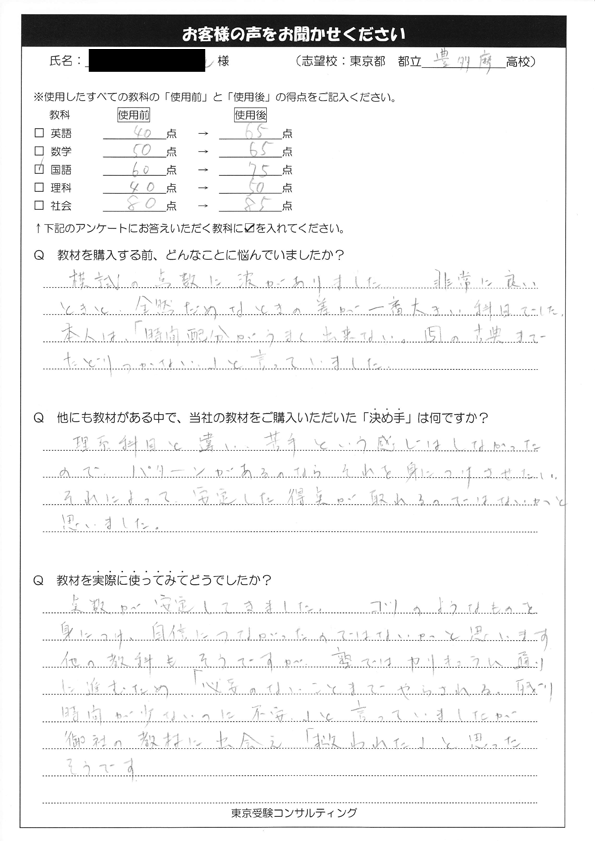 お客様の声をお聞かせください
氏名： 様 （志望校：東京都 都立 豊多摩 高校）
※使用したすべての教科の「使用前」と「使用後」の得点をご記入ください。
教科 使用前 使用後
□ 英語 40 点 → 65 点
□ 数学 50 点 → 65 点
☑ 国語 60 点 → 75 点
□ 理科 40 点 → 50 点
□ 社会 80 点 → 85 点
↑下記のアンケートにお答えいただく教科に☑を入れてください。
Q 教材を購入する前、どんなことに悩んでいましたか？
模試の点数に波がありました 非常に良い
ときと、全然だめなときの差が一番大きい科目でした。
本人は、「時間配分がうまく出来ない。国の古典まで
たどりつかない。」と言っていました。
Q 他にも教材がある中で、当社の教材をご購入いただいた「決め手」は何ですか？
理系科目と違い、苦手という感じはしなかった
ので パターンがあるのなら それを身につけさせたい。
それによって、安定した得点が取れるのではないかと
思いました。
Q 教材を実際に使ってみてどうでしたか？
点数が安定してきました。 コツのようなものを
身につけ、自信につながったのではないかと思います
他の教科もそうですが、塾では カリキュラム通り
に進むため「必要のないことまでやらされる。残り
時間が少ないのに不安。」と言っていましたが
御社の教材に出会え「救われた」と思った
そうです
東京受験コンサルティング